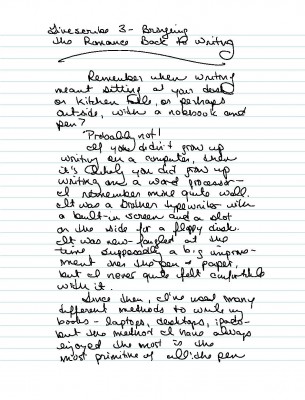 Livescribe 3 - Bringing
the Romance Back to Writing
Remember when writing
meant sitting at your desk
or kitchen table, or perhaps
outside, with a notebook and
pen?
Probably not!
If you didn't grow up
writing on a computer, then
it's likely you did grow up
writing on a word processor-
I remember mine quite well.
It was a Brother typewriter with
a built-in screen and a slot
on the side for a floppy disk.
It was new-fangled at the
time supposedly a big improve-
ment over the pen & paper,
but I never quite felt comfortable
with it.
Since then, I've used many
different methods to write my
books - laptops, desktops, ipads-
but the method I have always
enjoyed the most is the
most primitive of all: the pen